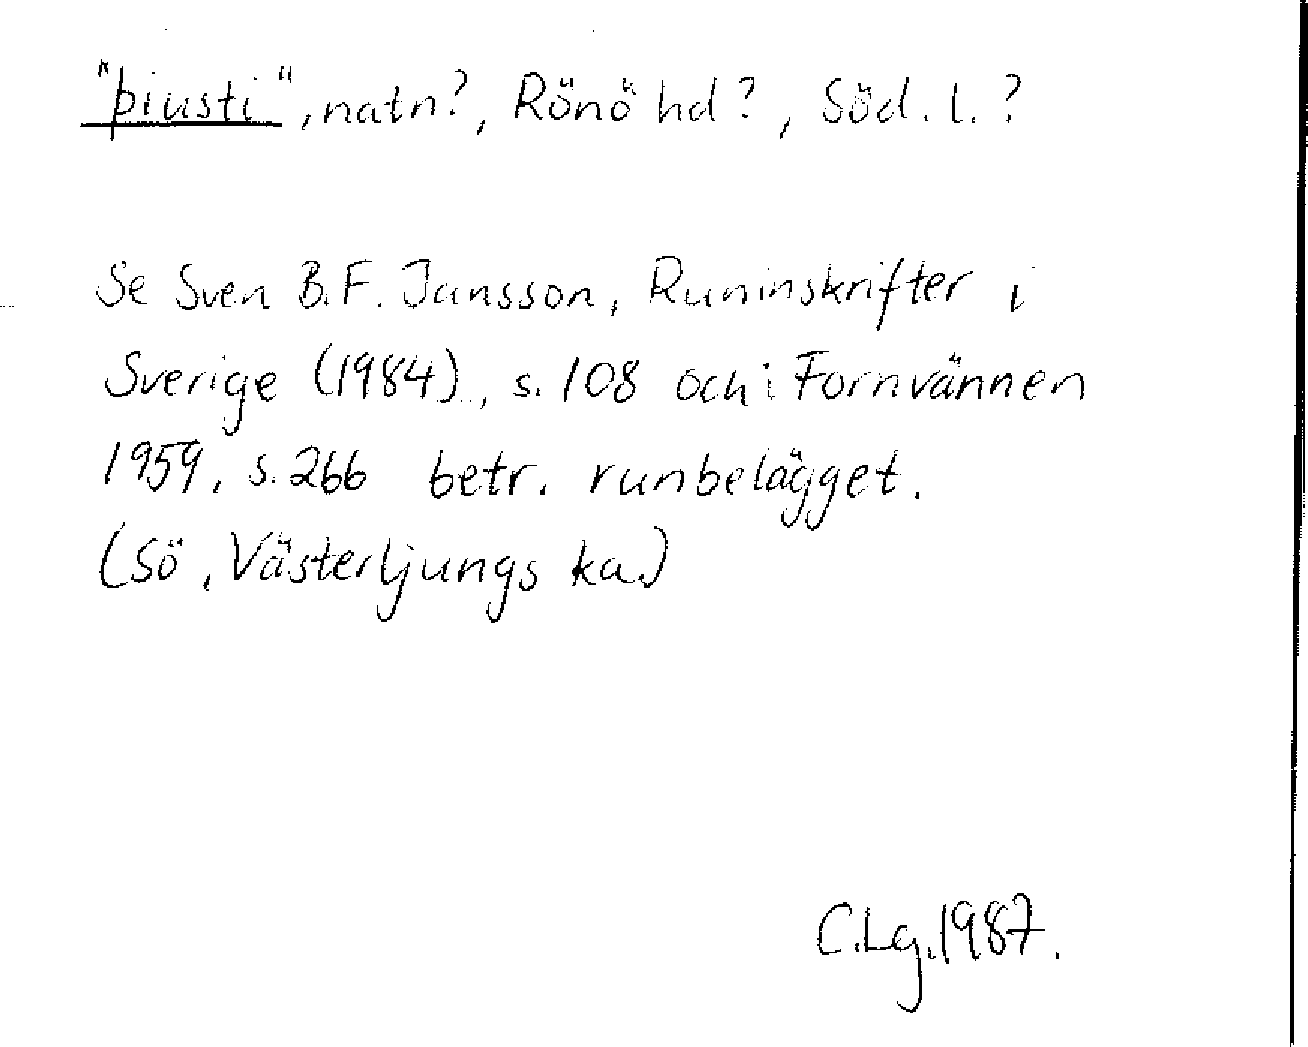 "þiusti", natn?, Rönö hd?, Söd. l.?
Se Sven B.F. Jansson, Runinskrifter i
Sverige (1984), s. 108 och i Fornvännen
1959, s. 266 betr. runbelägget.
(Sö, Västerljungs ka.)
C.Lg. 1987.